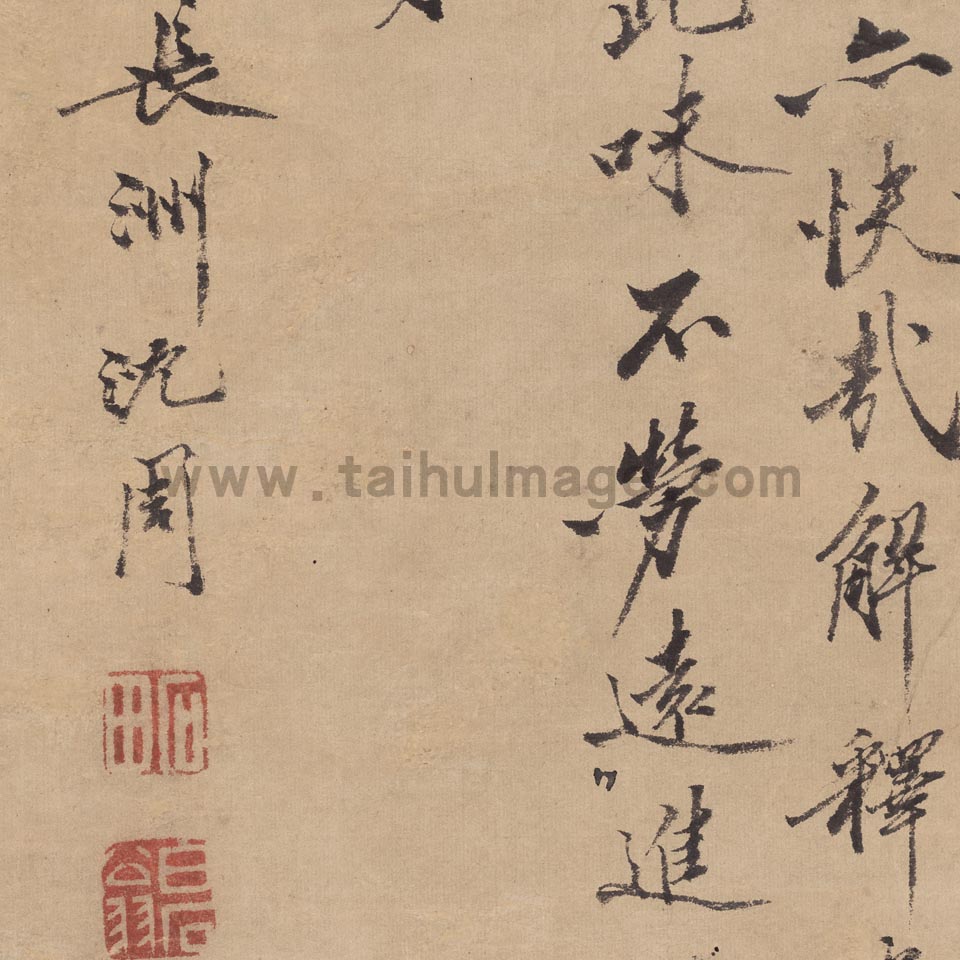 亦快哉解釋
此味不勞遠〻進
長洲沈周
石田
www.taihuImage.com